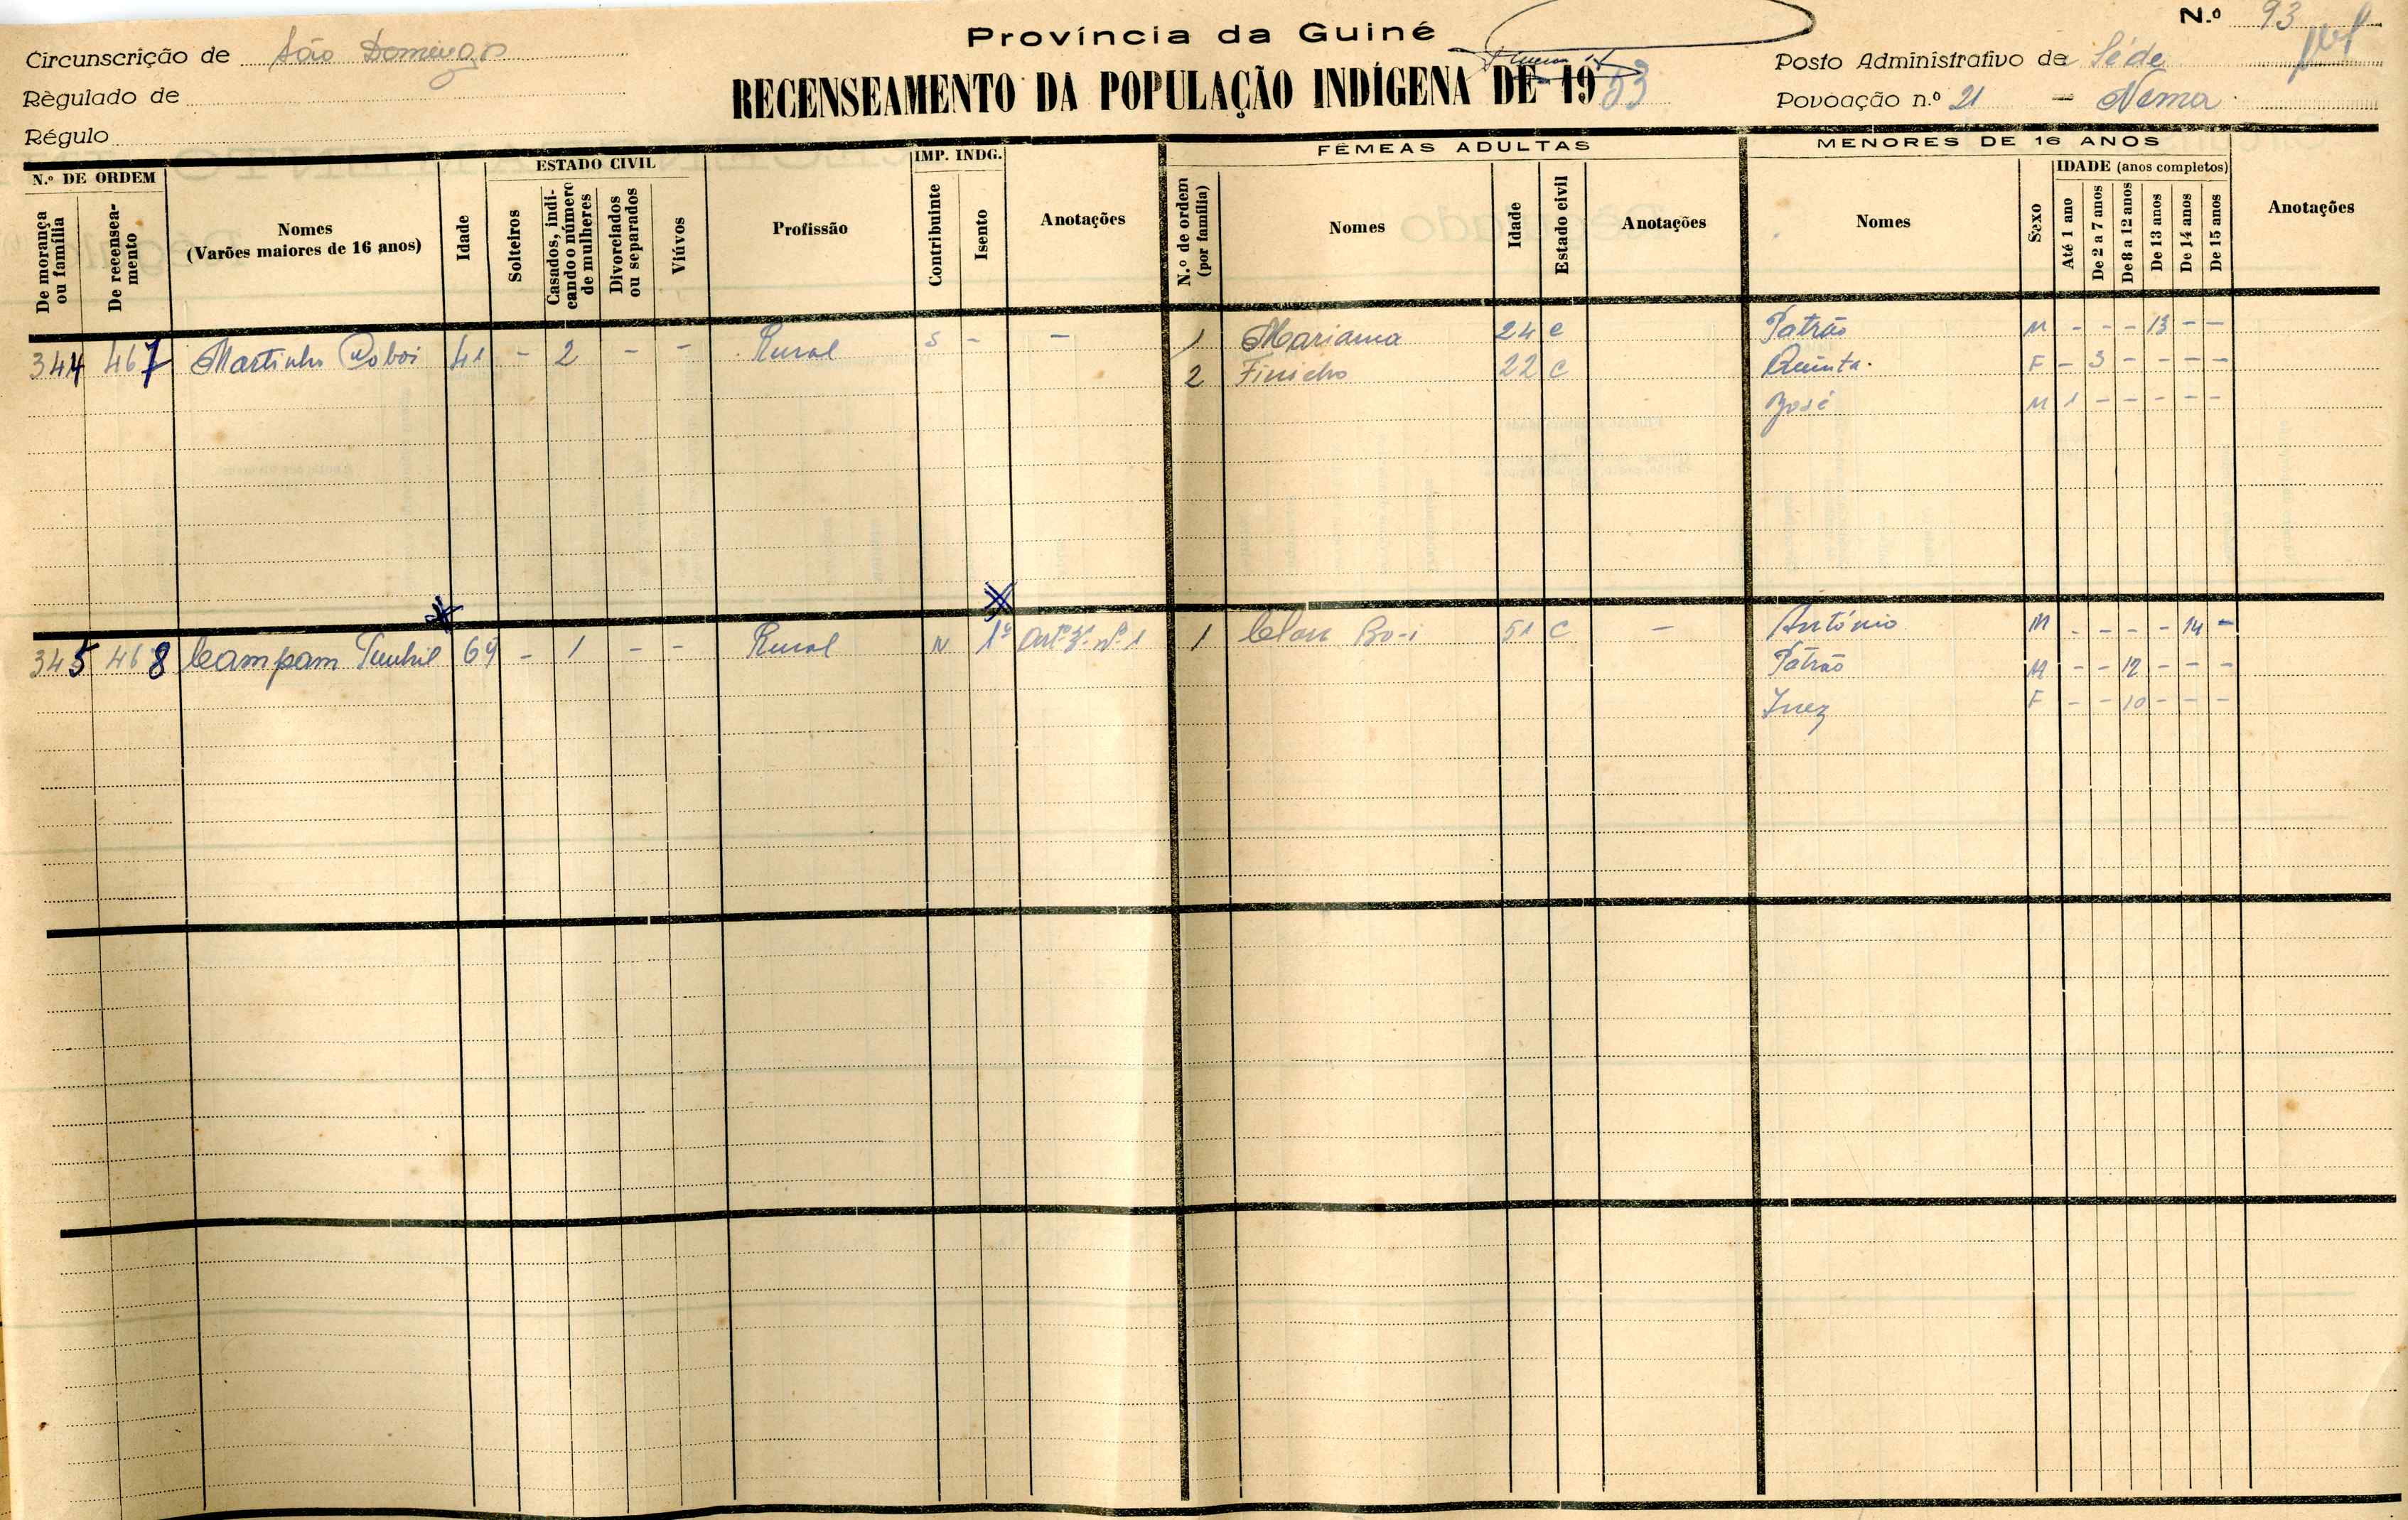 Província da Guiné
N.º 93
Circunscrição de São Domingos
Règulado de
Régulo
RECENSEAMENTO DA POPULAÇÃO INDÍGENA DE 1953
Posto Administrativo de Séde
Povoação n.º 21 - Nema
N.º DE ORDEM
De morança ou família
De recenseamento
Nomes
(Varões maiores de 16 anos)
Idade
ESTADO CIVIL
Solteiros
Casados, indicando o número de mulheres
Divorciados ou separados
Viúvos
Profissão
IMP. INDG.
Contribuinte
Isento
Anotações
FÊMEAS ADULTAS
N.º de ordem (por família)
Nomes
Idade
Estado civil
Anotações
MENORES DE 16 ANOS
Nomes
Sexo
IDADE (anos completos)
Até 1 ano
De 2 a 7 anos
De 8 a 12 anos
De 13 anos
De 14 anos
De 15 anos
Anotações
344 467 Martinho 41 - 2 - - Rural S - - 1 Mariama 24 C Patrão M - - - 13 - -
2 22 C Quinta F - 3 - - - -
José M 1 - - - - -
345 468 Campam 69 - 1 - - Rural N 1º Artº 3º nº 1 1 51 C - António M - - - - 14 -
Patrão M - - 12 - - -
Inez F - - 10 - - -